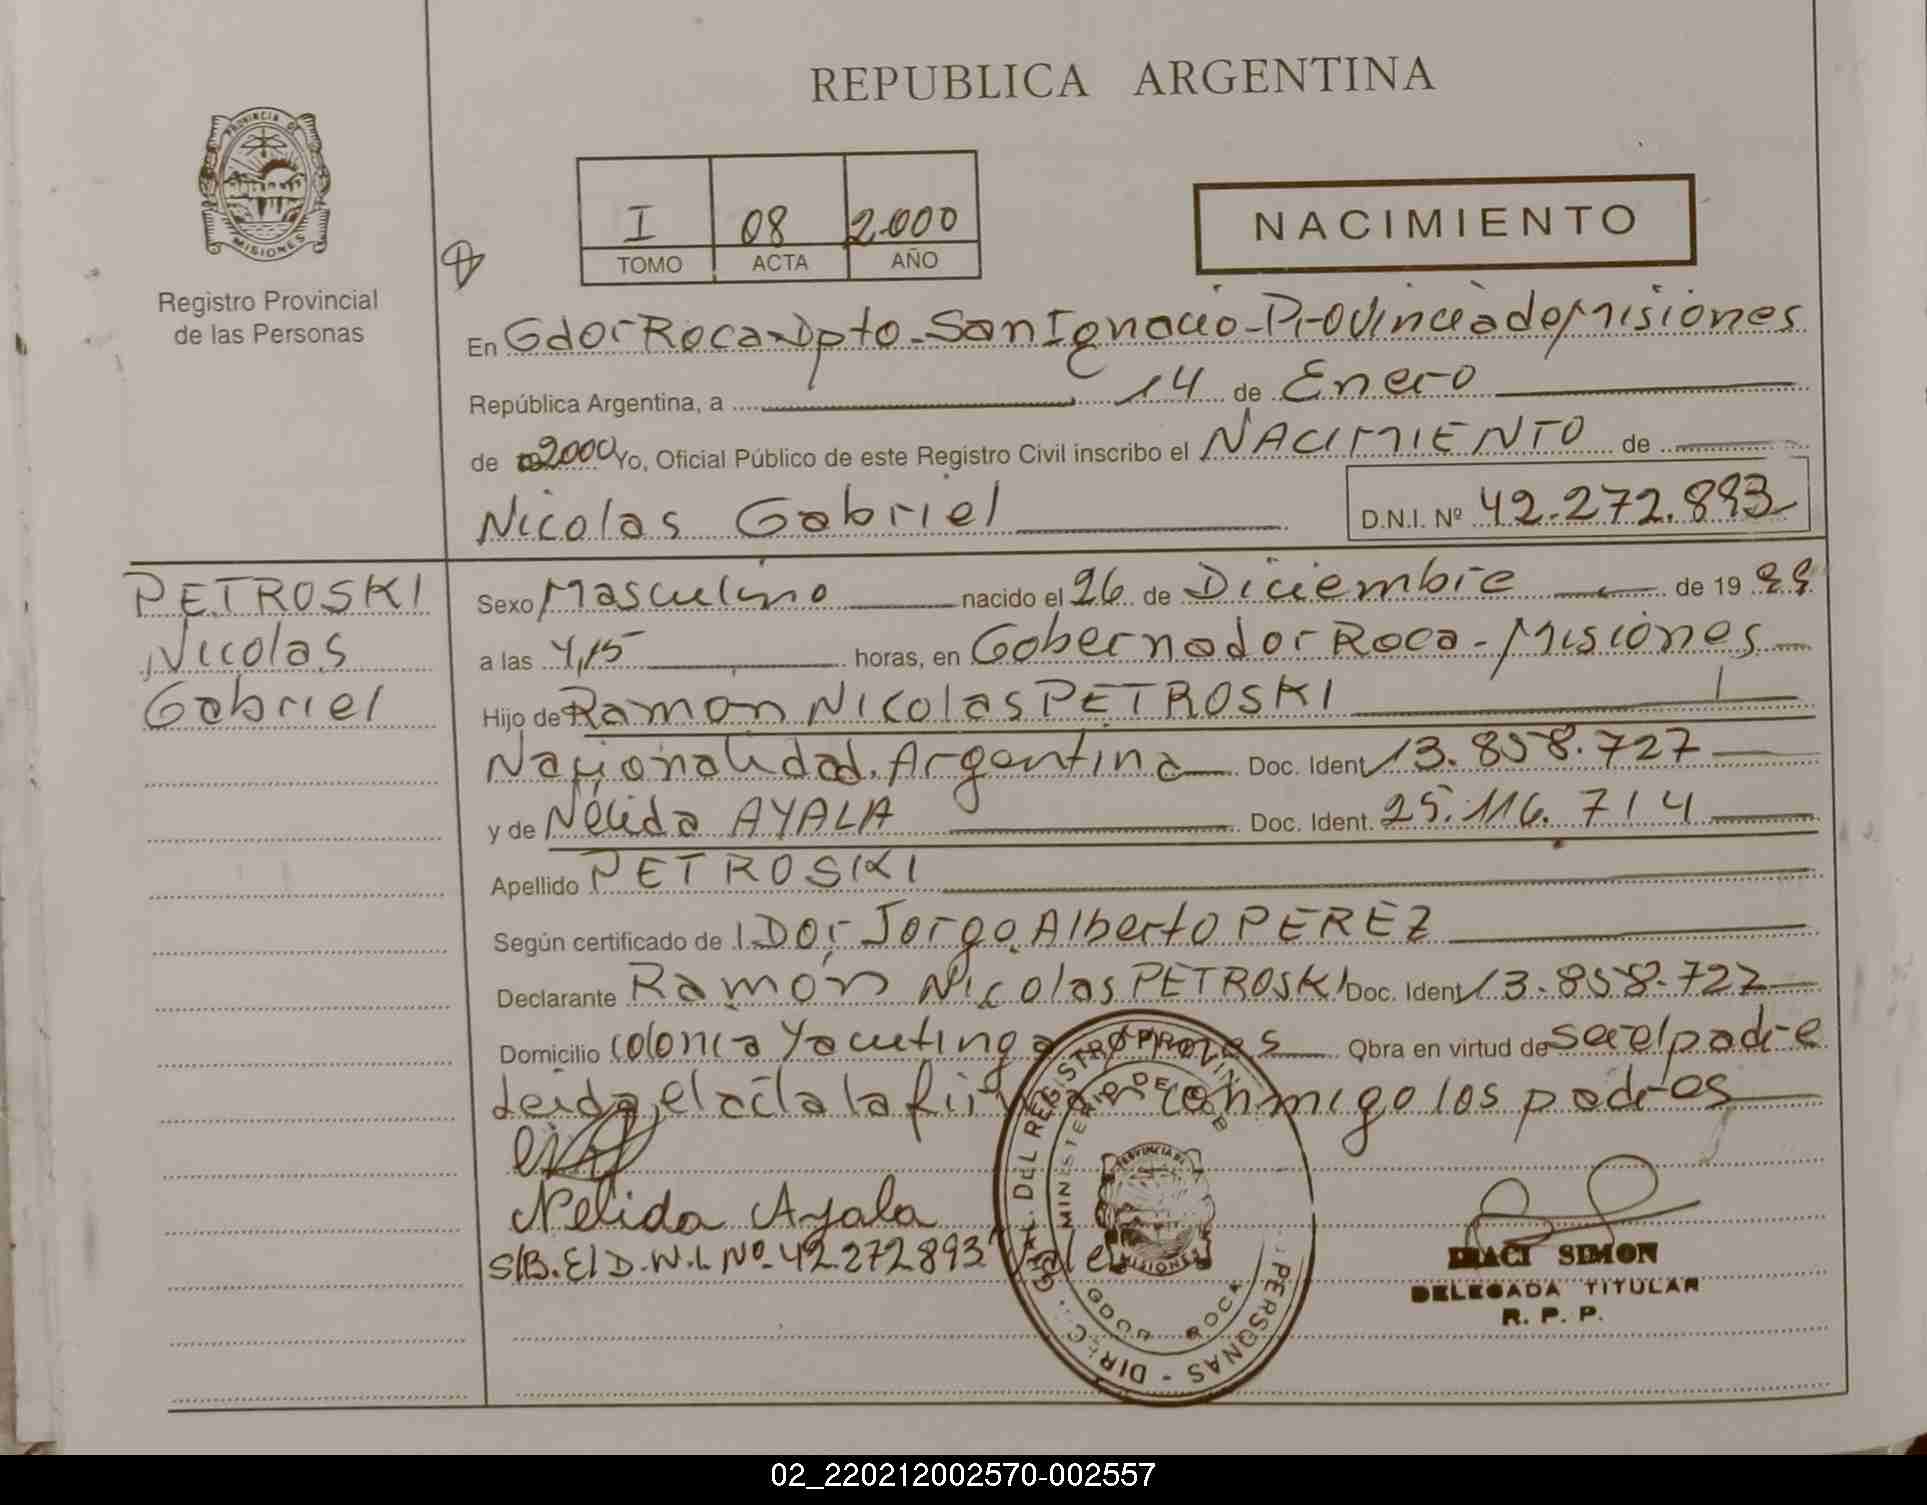 REPUBLICA ARGENTINA
PROVINCIA DE
MISIONES
Registro Provincial
de las Personas
I 08 2.000
TOMO ACTA AÑO
NACIMIENTO
En Gdor Roca - Dpto - San Ignacio - Provincia de Misiones
República Argentina, a 14 de Enero
de 2000 Yo, Oficial Público de este Registro Civil inscribo el NACIMIENTO de
Nicolas Gabriel D.N.I. Nº 42.272.893
PETROSKI
Nicolas
Gabriel
Sexo Masculino nacido el 26 de Diciembre de 19 99
a las 4,15 horas, en Gobernador Roca - Misiones
Hijo de Ramon Nicolas PETROSKI
Nacionalidad. Argentina Doc. Ident. 13.858.727
y de Nélida AYALA Doc. Ident. 25.116.714
Apellido PETROSKI
Según certificado de Dor. Jorge Alberto PEREZ
Declarante Ramón Nicolas PETROSKI Doc. Ident. 13.858.727
Domicilio Colonia Yacutinga Obra en virtud de ser el padre
Leida el acta la firman conmigo los padres
Nelida Ayala
S/B. El D.N.I. Nº. 42.272893 Vale
DIREC. GRAL. DEL REGISTRO PROVINC. PERSONAS
MINISTERIO DE GOB
PROVINCIA DE
MISIONES
ROCA
IRACI SIMON
DELEGADA TITULAR
R. P. P.
02_220212002570-002557